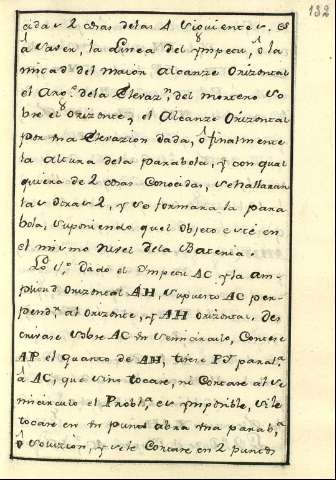 132
dadas 2 cosas delas 4 siguientes. es
â saver, la Linea del ympetu, ô la
mitad del maior Alcanze Orizontal
el Ang.º dela Elevaz.n del mortero so
bre el Orizonte, el Alcanze Orizontal
por una Elevazion dada, ô finalmente
la altura dela parabola, y con qual
quiera de 2 cosas Conocidas, se hallaran
las otras 2, y se formara la para
bola, suponiendo quel Objeto esté en
el mismo nivel dela Bateria.
Lo 1.º dado el Ympetu AC y la am-
plitud Orizontal AH, supuesto AC per-
pend.r al Orizonte, y AH Orizontal, Des
crivase sobre AC un semicirculo, Cortese
AP. el quarto de AH, tirese Pd paral.a
â AC, que sino tocare, ni Cortare al se
micirculo el Probl.a es ymposible, si le
tocare en un punto abra una parab.a
ô soluzion, y si le Cortare en 2 puntos